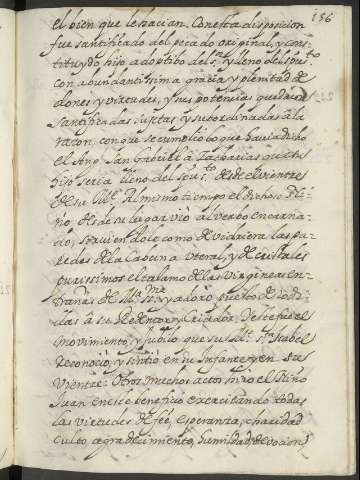 156
el bien que le hacian. Con esta disposicion
fue santificado del pecado original, y cons-
tituydo hijo adoptibo del sr. y lleno del spu.to
con abundantissima gracia y plenitud de
dones y virtudes, y sus potencias quedaron
santificadas sujetas y subordinadas a la
razon, con que se cumplio lo que havia dicho
el Angl. San Gabriel â Zacharias que su
hijo seria lleno del spu s.to desde el vientre
de su M.e Al mismo tiempo el dichoso Ni-
ño desde su lugar vio al verbo encarna-
do, sirviendole como de vidriera las pa-
redes de la caberna uteral, y de cristales
purissimos el talamo de las Virgineas en-
trañas de M.a ss.ma y adoro puesto de rodi-
llas â su Redemptor y Criador. Y este fue el
movimiento, y jubilo que su M.e s.ta Isabel
reconocio, y sintio en su Infante y en su
vientre. Otros muchos actos hizo el Niño
Juan en este beneficio exercitando todas
las virtudes de fée, esperanza, charidad
culto, agradecimiento, humildad, devocion